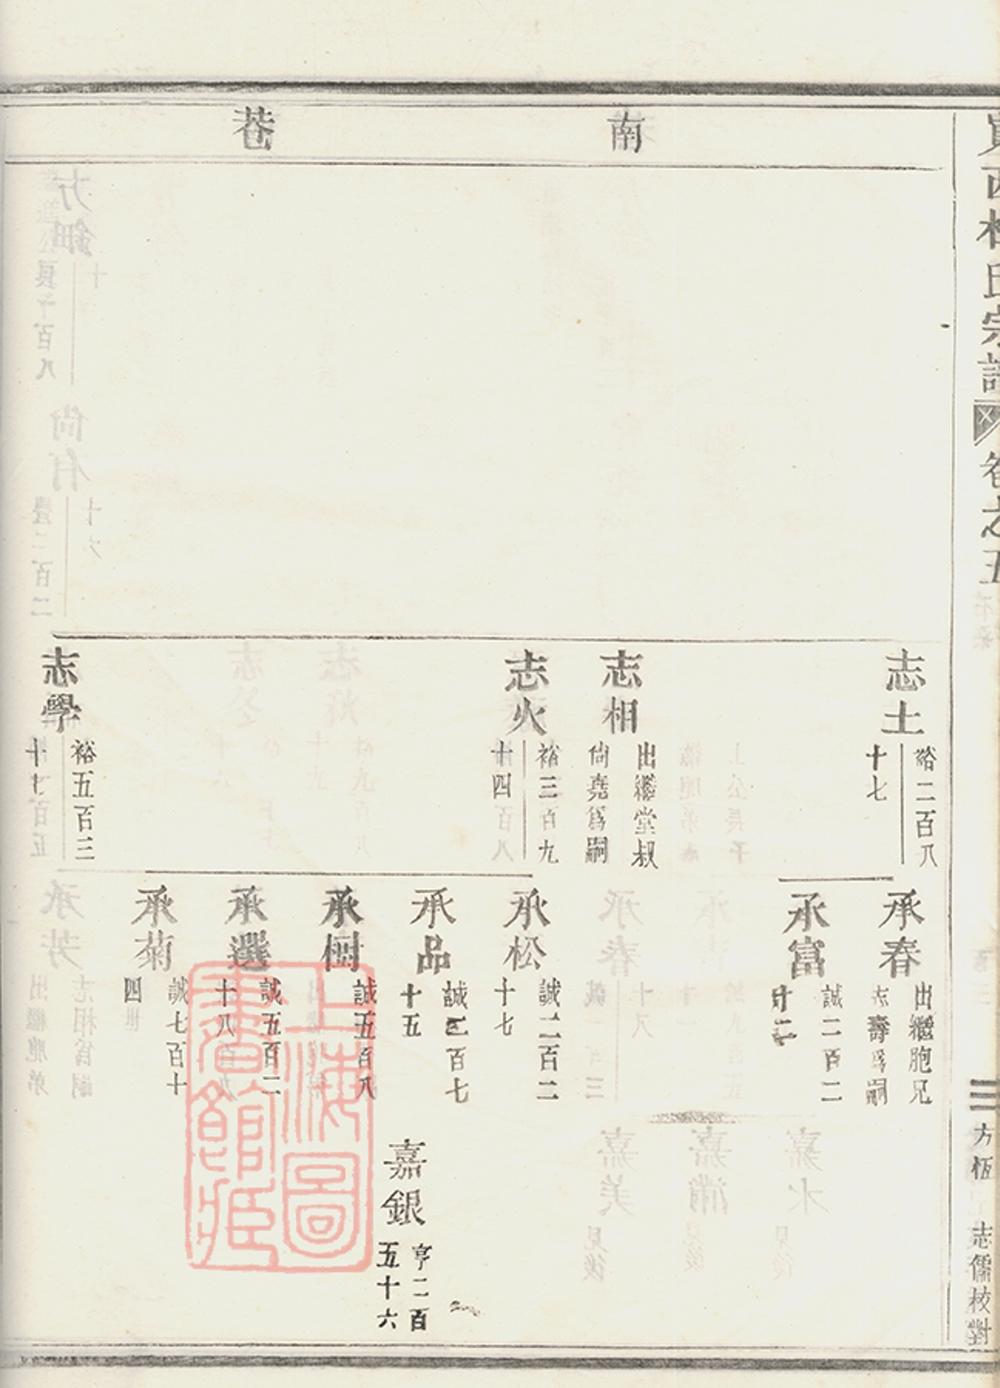 南巷
志土
裕二百八
十七
志相
出繼堂叔
尙堯爲嗣
志火
裕三百九
十四
志學
裕五百三
承春
出繼胞兄
志壽爲嗣
承富
誠二百二
十二
承松
誠二百二
十七
承品
誠三百七
十五
承樹
誠五百八
承選
誠五百二
十八
承菊
誠七百十
四
嘉銀
亨二百
五十六
氏宗譜
卷之五
三
方恆
志儒校對
上海圖書館藏